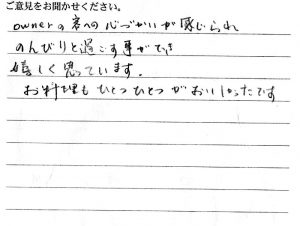 ご意見をお聞かせください。
ownerの客への心づかいが感じられ
のんびりと過ごす事ができ
嬉しく思っています。
お料理もひとつひとつがおいしかったです